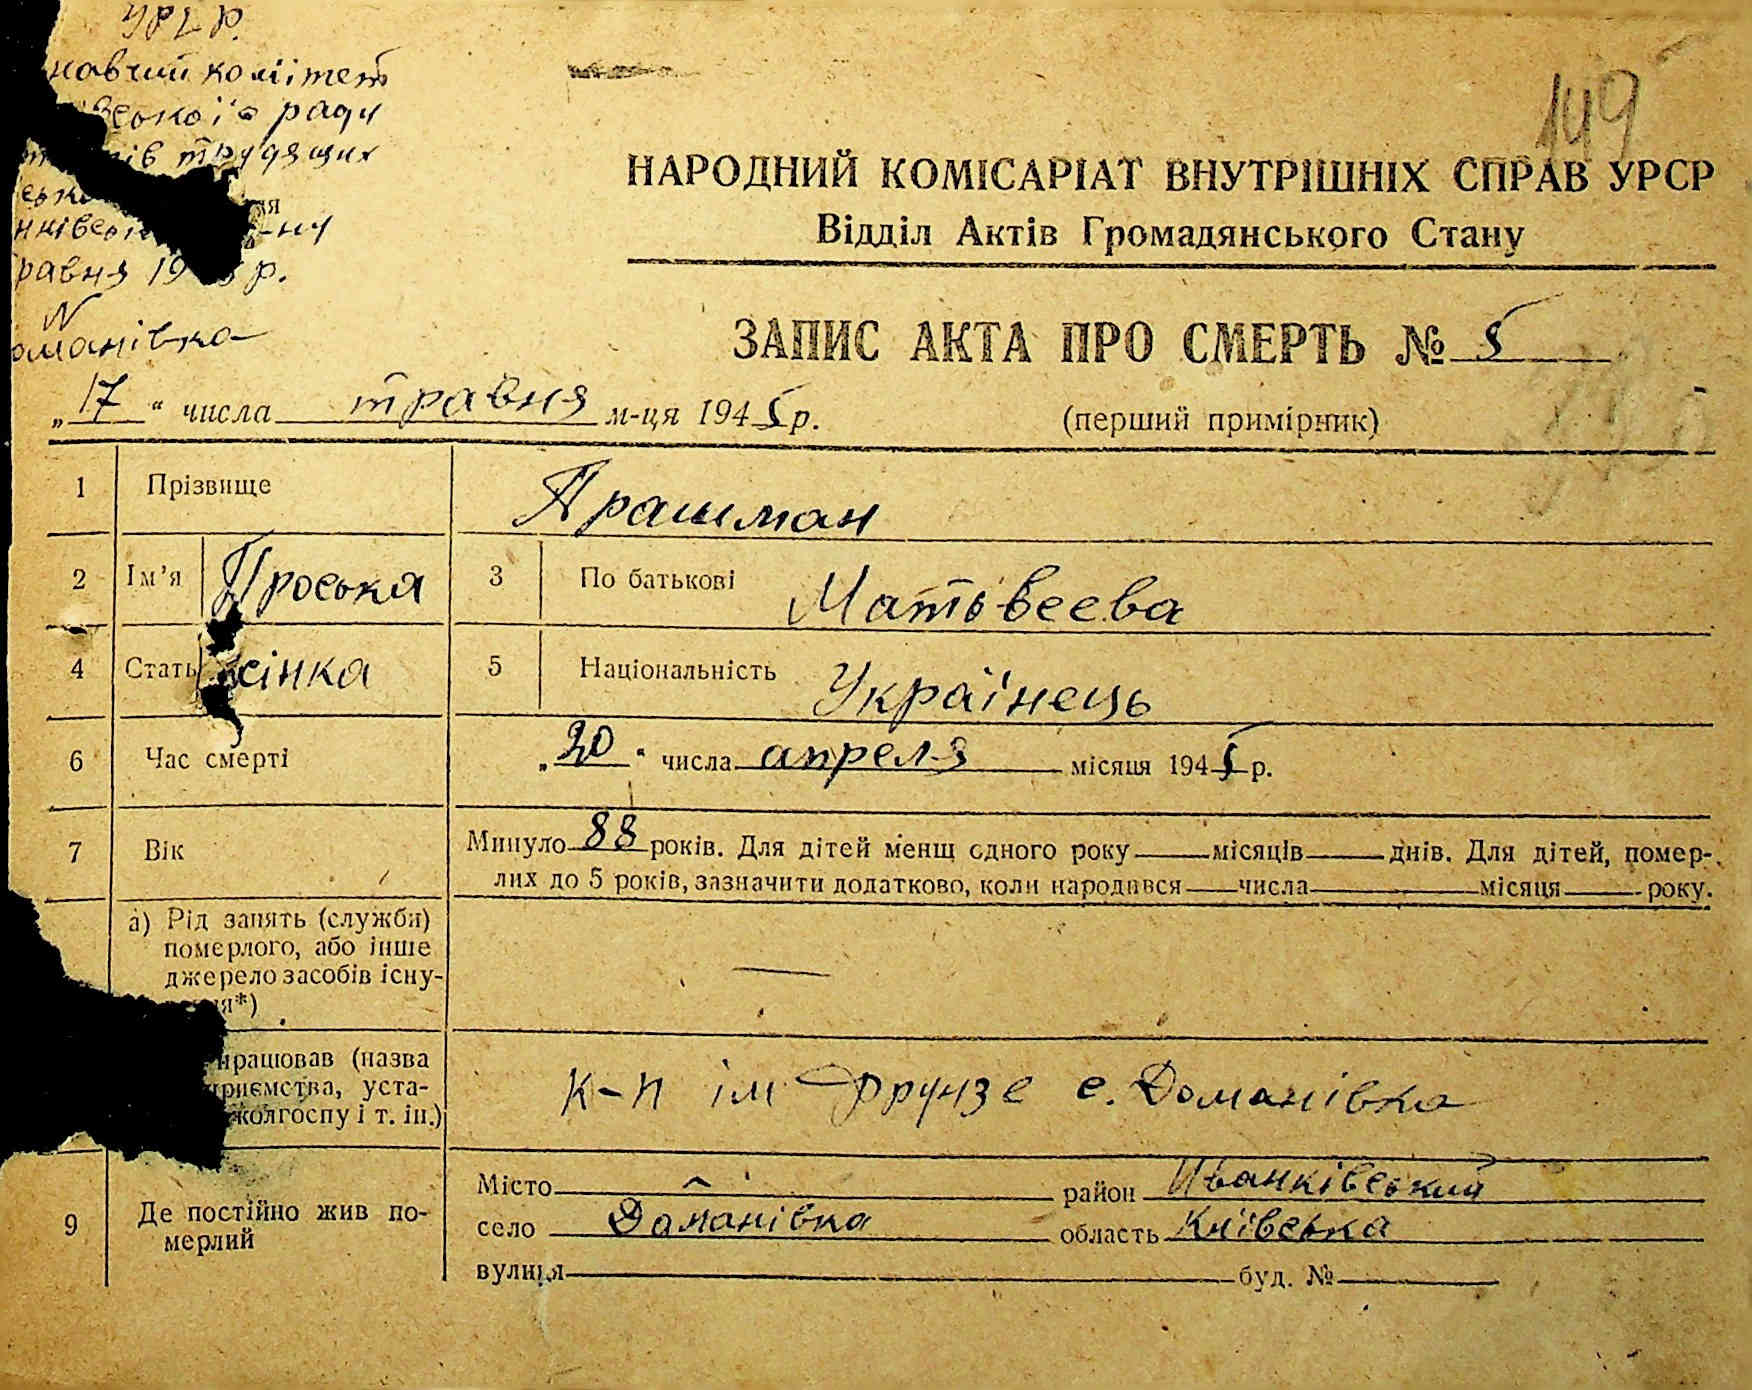 УРСР.
навчий комітет
ради
трудящих
равня 19 р.
N
оманівка
149
НАРОДНИЙ КОМІСАРІАТ ВНУТРІШНІХ СПРАВ УРСР
Відділ Актів Громадянського Стану
ЗАПИС АКТА ПРО СМЕРТЬ № 5
„17“ числа травня м-ця 1945 р.
(перший примірник)
1 Прізвище Арашман
2 Ім’я Проська 3 По батькові Матовеева
4 Стать жінка 5 Національність Українець
6 Час смерті „20“ числа апреля місяця 1945 р.
7 Вік Минуло 88 років. Для дітей менш одного року місяців днів. Для дітей, помер-
лих до 5 років, зазначити додатково, коли народився числа місяця року.
а) Рід занять (служби)
померлого, або інше
джерело засобів існу-
ня*) —
працював (назва
приємства, уста-
колгоспу і т. ін.)
к-п ім Фрунзе с. Доманівка
9 Де постійно жив по-
мерлий
Місто район Иванківський
село Даманівка область Київська
вулиця буд. №